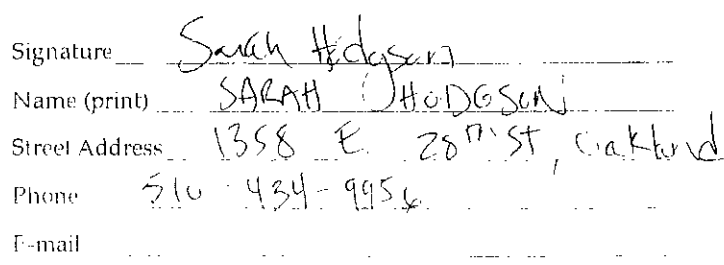 Signature Sarah Hodgson
Name (print) SARAH HODGSON
Street Address 1358 E. 28TH ST, Oakland
Phone 510 434-9956
E-mail